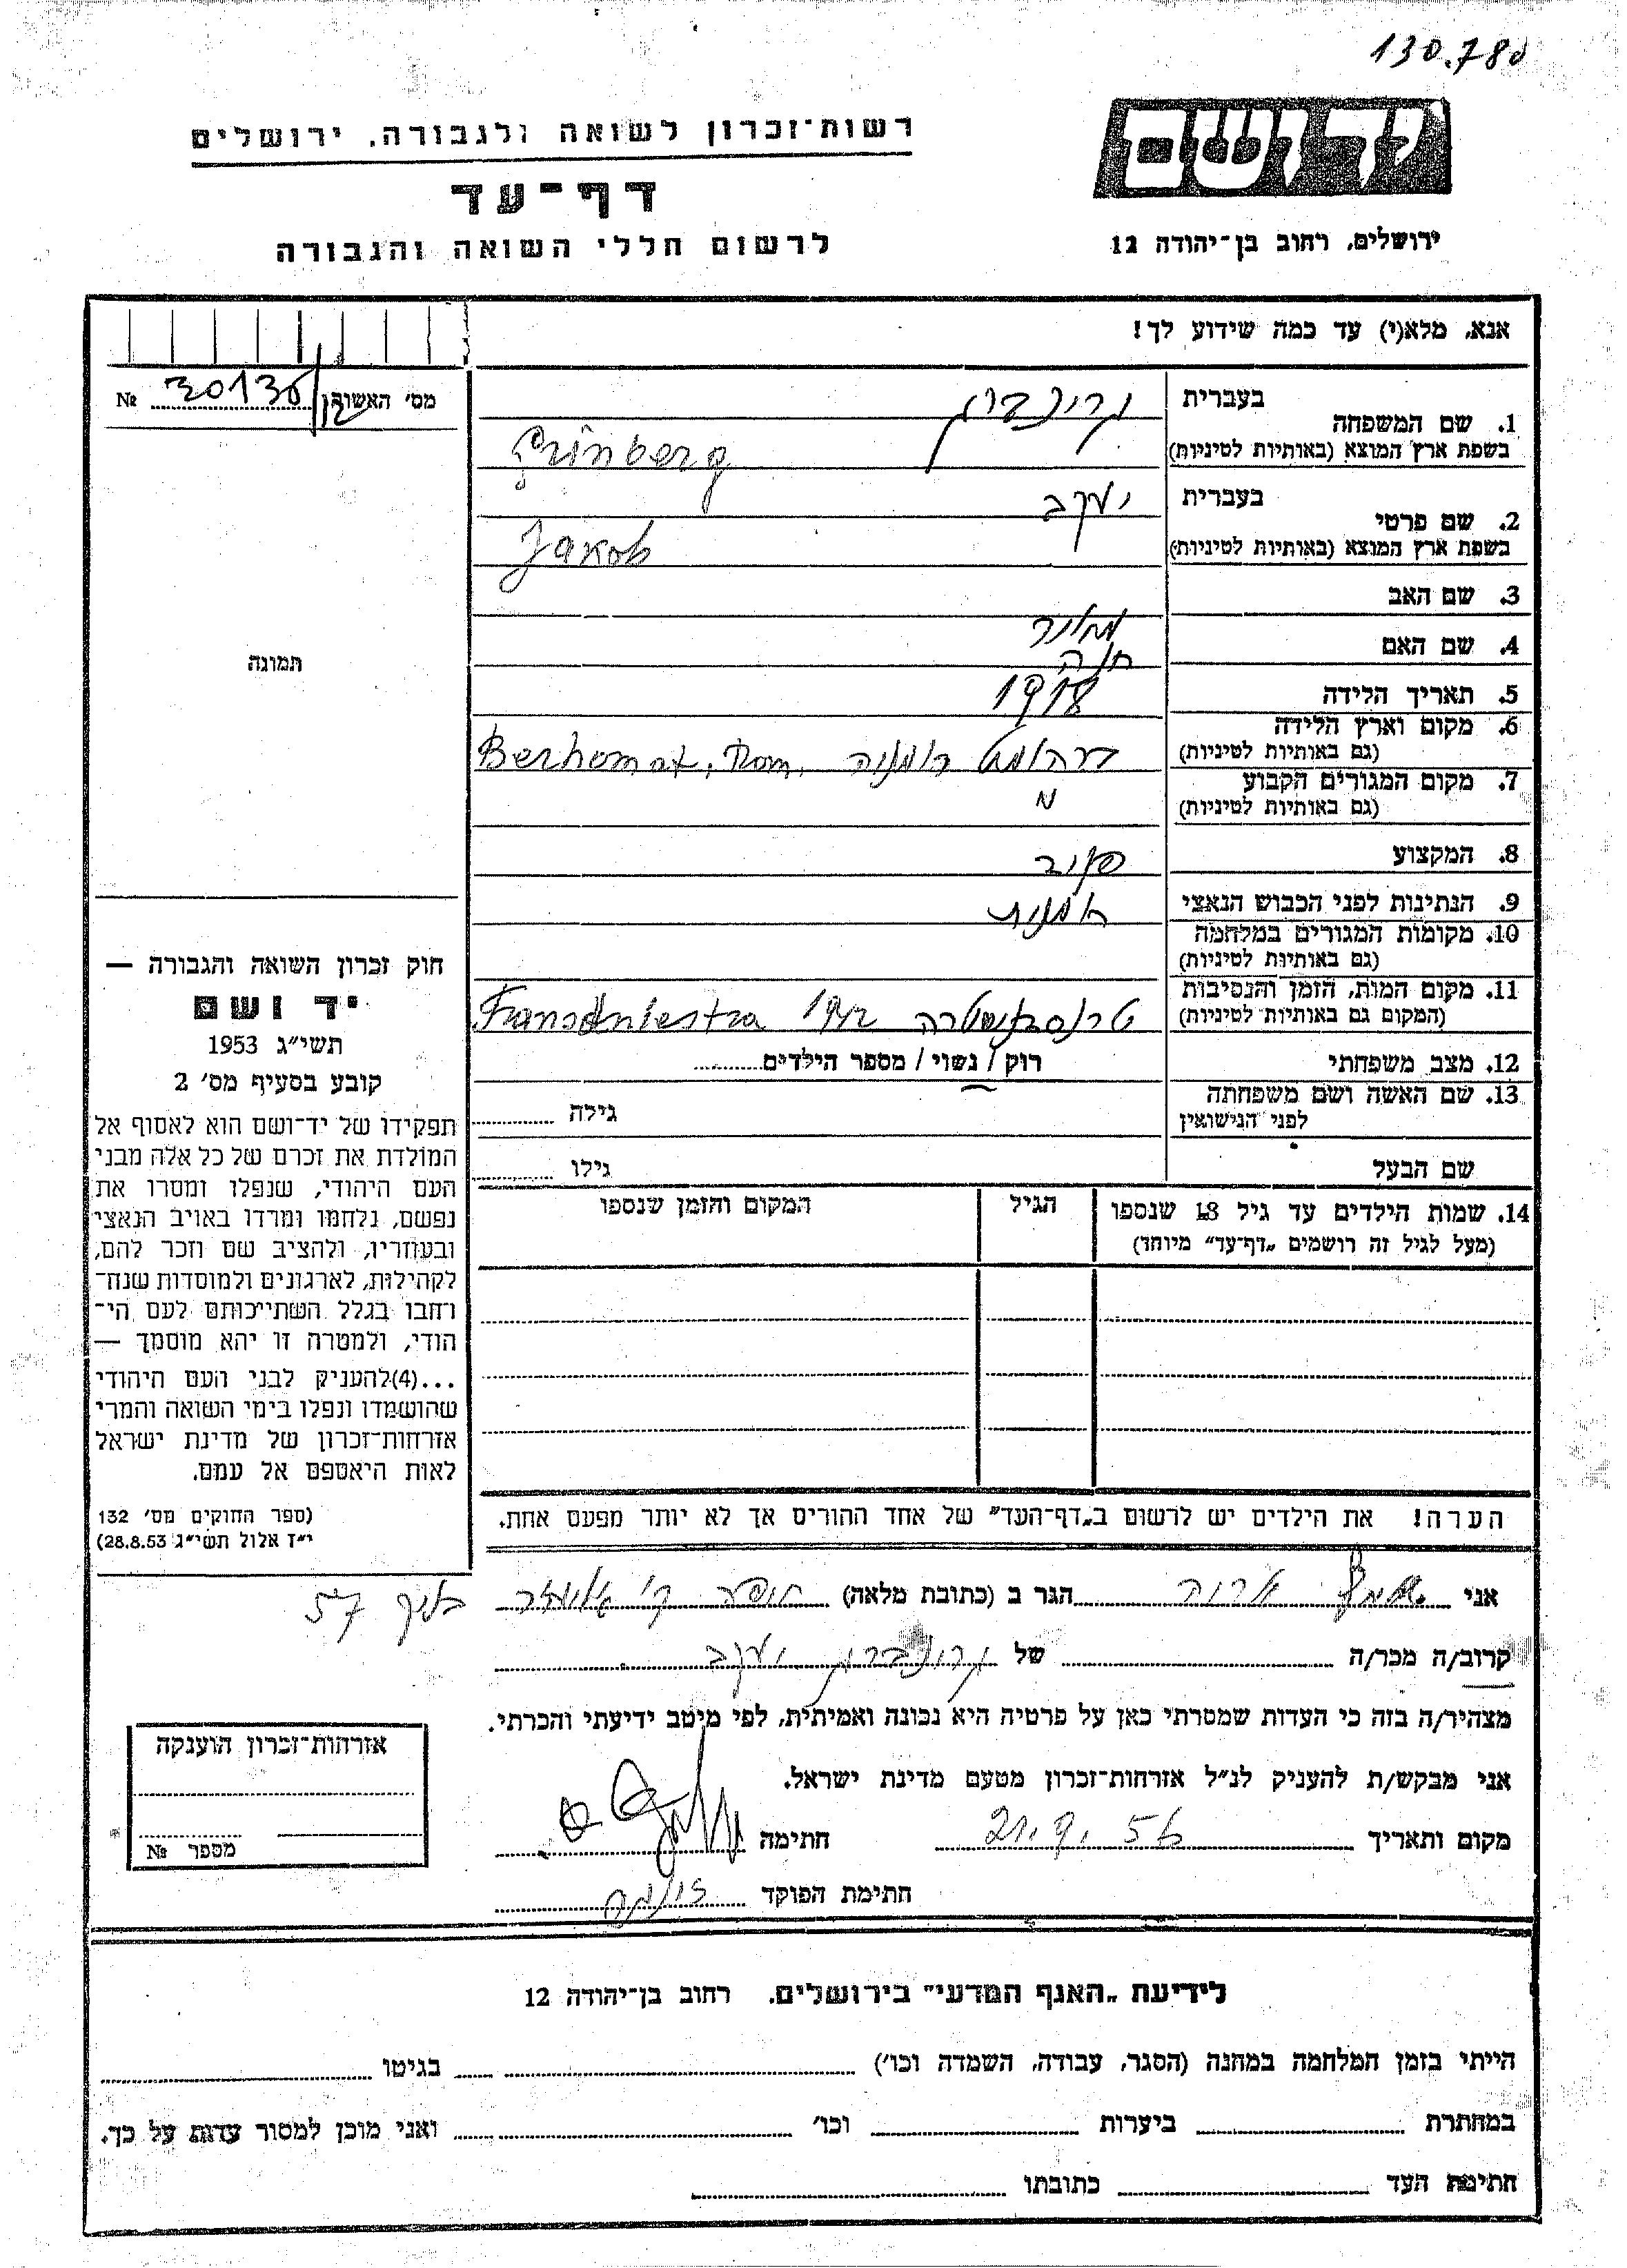 130.780
יד ושם
רשות־זכרון לשואה ולגבורה, ירושלים
דף־עד
ירושלים, רחוב בן־יהודה 12
לרשום חללי השואה והגבורה
אנא, מלא(י) עד כמה שידוע לך!
מס׳ האשור № 30136
1. שם המשפחה
בעברית גרינברג
בשפת ארץ המוצא (באותיות לטיניות) Grinberg
2. שם פרטי
בעברית יעקב
בשפת ארץ המוצא (באותיות לטיניות) Jakob
3. שם האב
4. שם האם חנה
5. תאריך הלידה 1918
6. מקום וארץ הלידה
(גם באותיות לטיניות) ברהומט רומניה Berhomat, Rom.
7. מקום המגורים הקבוע
(גם באותיות לטיניות)
8. המקצוע
9. הנתינות לפני הכבוש הנאצי
10. מקומות המגורים במלחמה
(גם באותיות לטיניות)
11. מקום המות, הזמן והנסיבות
(המקום גם באותיות לטיניות) 1942 Transdniestra
12. מצב משפחתי רוק / נשוי / מספר הילדים
13. שם האשה ושם משפחתה
לפני הנישואין גילה
שם הבעל גילו
14. שמות הילדים עד גיל 18 שנספו הגיל המקום והזמן שנספו
(מעל לגיל זה רושמים „דף־עד״ מיוחד)
הערה! את הילדים יש לרשום ב„דף־העד״ של אחד ההורים אך לא יותר מפעם אחת.
תמונה
חוק זכרון השואה והגבורה —
יד ושם
תשי״ג 1953
קובע בסעיף מס׳ 2
תפקידו של יד־ושם הוא לאסוף אל
המולדת את זכרם של כל אלה מבני
העם היהודי, שנפלו ומסרו את
נפשם, נלחמו ומרדו באויב הנאצי
ובעוזריו, ולהציב שם וזכר להם,
לקהילות, לארגונים ולמוסדות שנח־
רחבו בגלל השתייכותם לעם הי־
הודי, ולמטרה זו יהא מוסמך —
...(4)להעניק לבני העם היהודי
שהושמדו ונפלו בימי השואה והמרי
אזרחות־זכרון של מדינת ישראל
לאות היאספם אל עמם.
(ספר החוקים מס׳ 132
י״ז אלול תשי״ג 28.8.53)
אני הגר ב (כתובת מלאה) 57
קרוב/ה מכר/ה של גרינברג יעקב
מצהיר/ה בזה כי העדות שמסרתי כאן על פרטיה היא נכונה ואמיתית, לפי מיטב ידיעתי והכרתי.
אני מבקש/ת להעניק לנ״ל אזרחות־זכרון מטעם מדינת ישראל.
מקום ותאריך 21.9.56 חתימה
חתימת הפוקד
אזרחות־זכרון הוענקה
מספר №
לידיעת „האגף המדעי״ בירושלים, רחוב בן־יהודה 12
הייתי בזמן המלחמה במחנה (הסגר, עבודה, השמדה וכו׳) בגיטו
במחתרת ביערות וכו׳ ואני מוכן למסור עדות על כך.
חתימת העד כתובתו